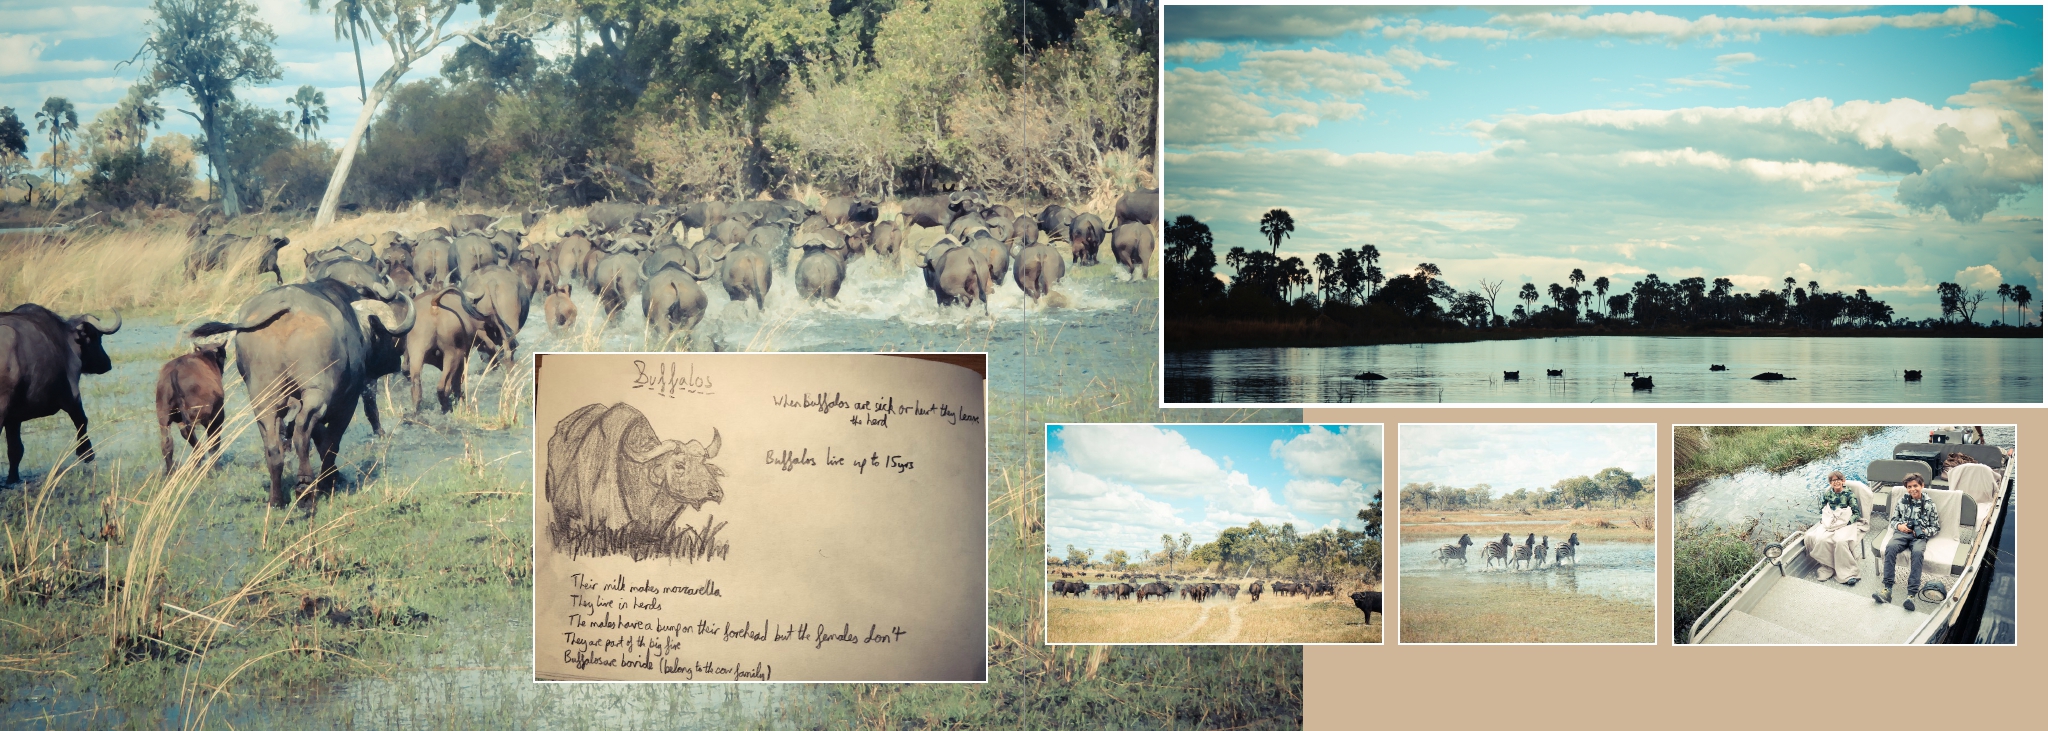 Buffalos
When buffalos are sick or hurt they leave
the herd
Buffalos live up to 15yrs
Their milk makes mozzarella
They live in herds
The males have a bump on their forehead but the females don't
They are part of the big five
Buffalos are bovide (belong to the cow family)